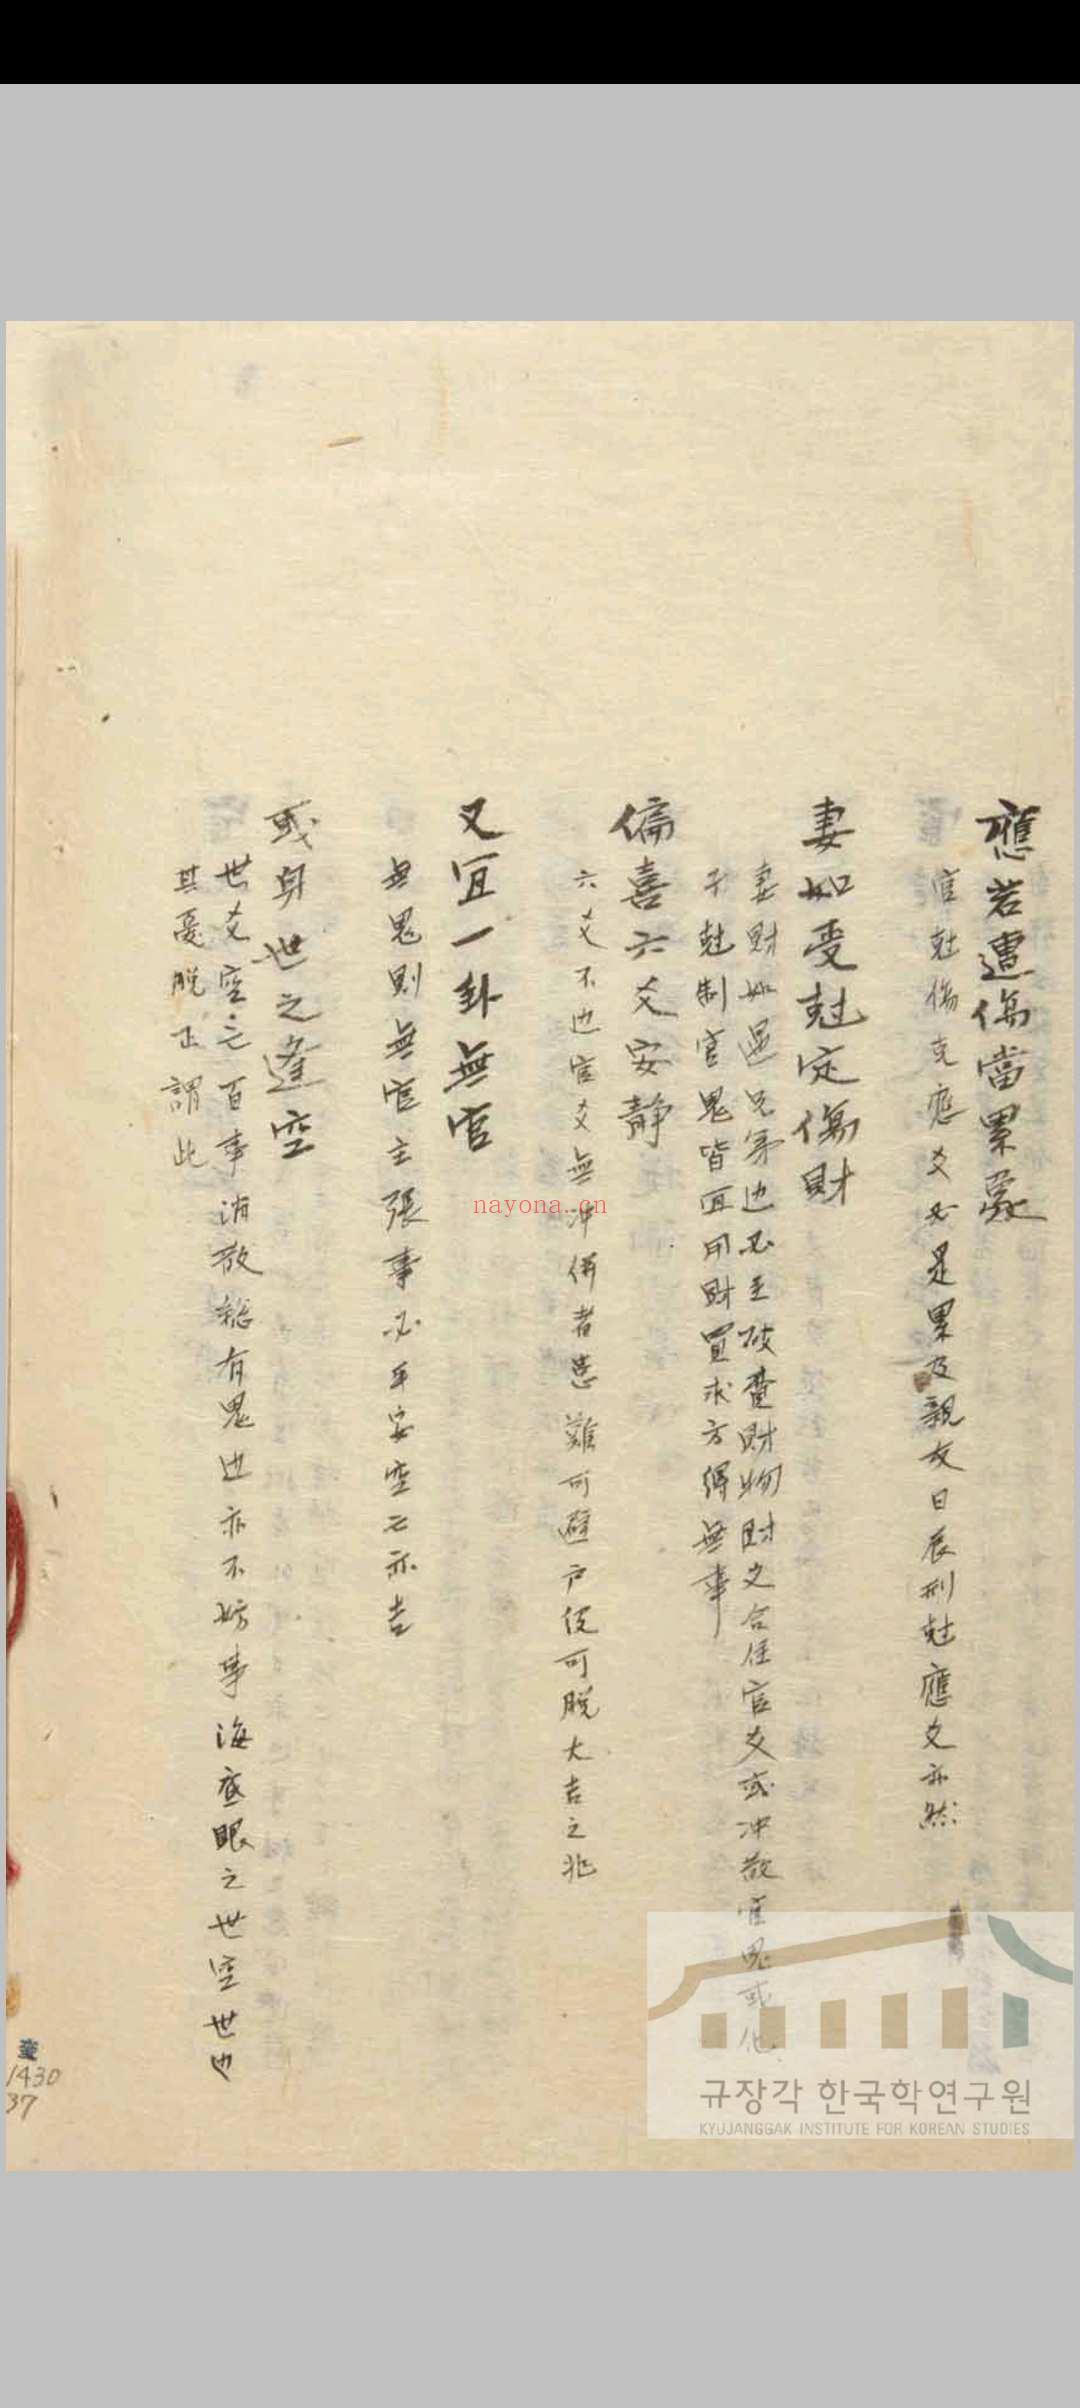 應若遭傷當累衆
官尅傷克應爻必是累及親友日辰刑尅應爻亦然
妻如受尅定傷財
妻財如遇兄弟也必主破費財物財爻合住官爻或冲散官鬼或化
子尅制官鬼皆宜用財買求方得無事
偏喜六爻安静
六爻不也官爻無冲併者患難可避戸役可脱大吉之兆
又宜一卦無官
無鬼則無官主張事必平安空亡亦吉
或身世之逢空
世爻空亡百事消散総有鬼也亦不妨事海底眼之世空世也
其憂脱正謂此
nayona.cn
규장각 한국학연구원
KYUJANGGAK INSTITUTE FOR KOREAN STUDIES
奎
1430
37